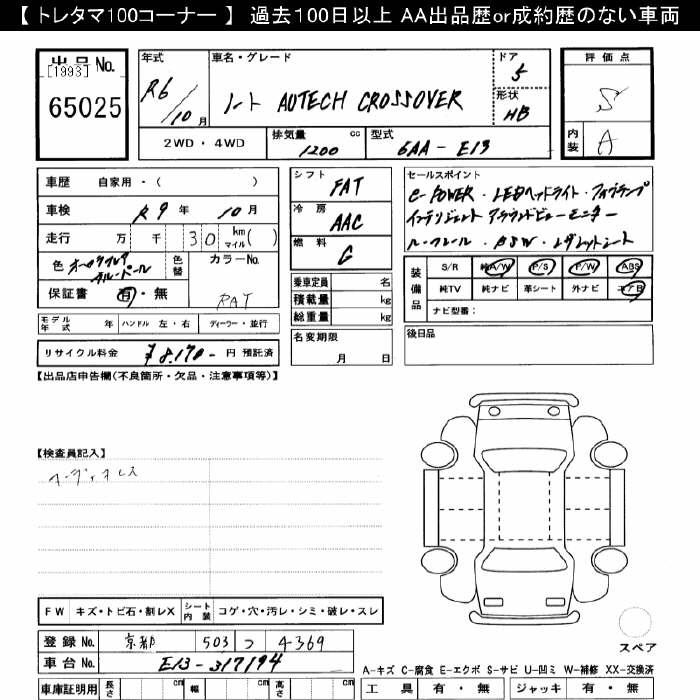 【 トレタマ100コーナー 】 過去100日以上 AA出品歴or成約歴のない車両
出品No.
[1993]
65025
年式
R6/10月
車名・グレード
ノート AUTECH CROSSOVER
ドア
5
形状
HB
評価点
S
内装
A
2WD・4WD
排気量
1200 cc
型式
6AA-E13
車歴 自家用・( )
車検 R9年 10月
走行 万 千 30 km マイル ( )
色
色替
カラーNo.
RAT
保証書 有・無
モデル年式 年 ハンドル 左・右 ディーラー・並行
リサイクル料金 ¥8,170- 円 預託済
シフト FAT
冷房 AAC
燃料 G
乗車定員 名
積載量 kg
総重量 kg
名変期限
月 日
セールスポイント
e-POWER・LEDヘッドライト・フォグランプ
インテリジェント アラウンドビューモニター
ルーフレール・BSW・レザレットシート
装備品
S/R 純A/W P/S P/W ABS
純TV 純ナビ 革シート 外ナビ エアB
ナビ型番:
後日品
【出品店申告欄(不良箇所・欠品・注意事項等)】
【検査員記入】
オーディオレス
FW キズ・トビ石・割レX シート内装 コゲ・穴・汚レ・シミ・破レ・スレ
登録No. 京都 503 つ 4369
車台No. E13-317194
車庫証明用 長さ cm 幅 cm 高さ cm
スペア
A-キズ C-腐食 E-エクボ S-サビ U-凹ミ W-補修 XX-交換済
工具 有・無 ジャッキ 有・無